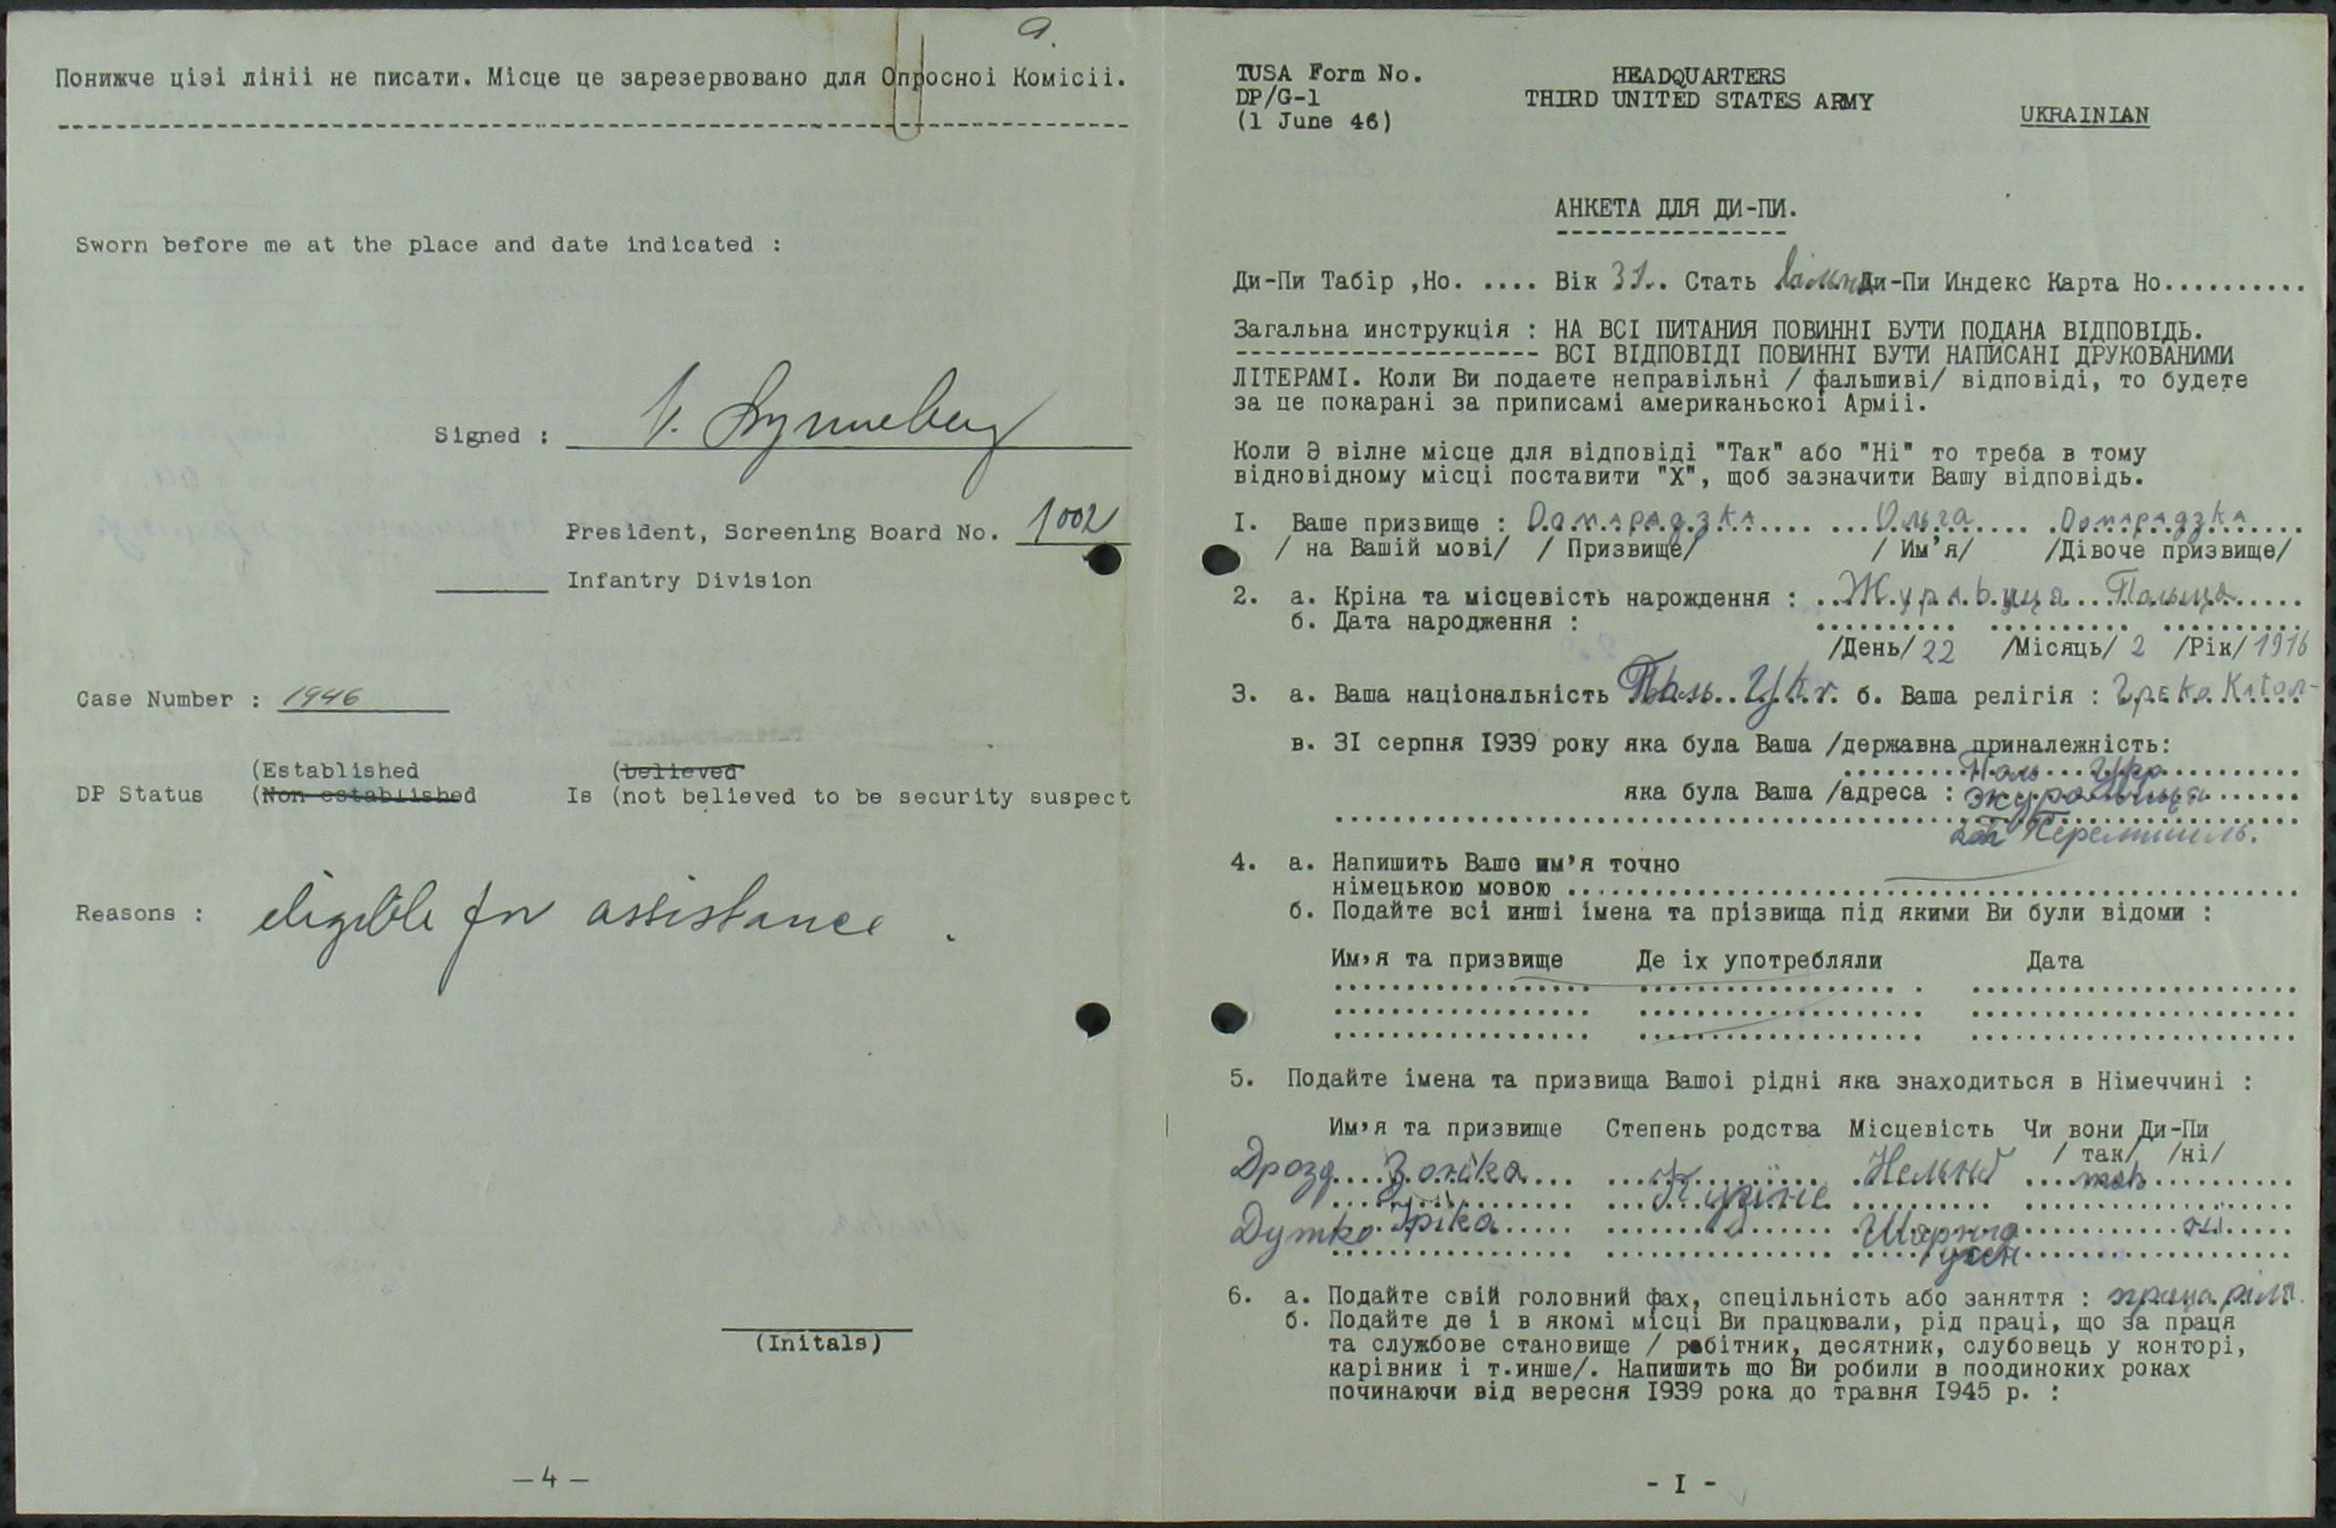 a.
Понижче цієі лініі не писати. Місце це зарезервовано для Опросноі Комісіі.
Sworn before me at the place and date indicated :
Signed :
President, Screening Board No. 1002
Infantry Division
Case Number : 1946
(Established (believed
DP Status (Non established Is (not believed to be security suspect
Reasons : eligible for assistance .
(Initals)
— 4 —
TUSA Form No. HEADQUARTERS
DP/G-1 THIRD UNITED STATES ARMY
(1 June 46) UKRAINIAN
АНКЕТА ДЛЯ ДИ-ПИ.
Ди-Пи Табір ,Но. .... Вік 31.. Стать вільна Ди-Пи Индекс Карта Но..........
Загальна инструкція : НА ВСІ ПИТАНИЯ ПОВИННІ БУТИ ПОДАНА ВІДПОВІДЬ.
ВСІ ВІДПОВІДІ ПОВИННІ БУТИ НАПИСАНІ ДРУКОВАНИМИ
ЛІТЕРАМІ. Коли Ви подаете неправільні / фальшиві/ відповіді, то будете
за це покарані за приписамі американьскоі Арміі.
Коли Є вілне місце для відповіді "Так" або "Ні" то треба в тому
відновідному місці поставити "Х", щоб зазначити Вашу відповідь.
I. Ваше призвище : Домарадзка Ольга Домарадзка
/ на Вашій мові/ / Призвище/ / Им'я/ /Дівоче призвище/
2. а. Кріна та місцевість нарождення : Журавиця Польща
б. Дата народження :
/День/ 22 /Місяць/ 2 /Рік/ 1916
3. а. Ваша національність Поль. Укр. б. Ваша релігія : Греко Катол-
в. 3I серпня I939 року яка була Ваша /державна приналежність:
Поль Укр
яка була Ваша /адреса : Журавиця
Перемишель.
4. а. Напишить Ваше им'я точно
німецькою мовою
б. Подайте всі инші імена та прізвища під якими Ви були відоми :
Им,я та призвище Де іх употребляли Дата
5. Подайте імена та призвища Вашоі рідні яка знаходиться в Німеччині :
Им,я та призвище Степень родства Місцевість Чи вони Ди-Пи
/ так/ /ні/
Дрозд Зонька Кузіне так
Дутко Ірка ні
6. а. Подайте свій головний фах, спецільність або заняття : праца ріль.
б. Подайте де і в якомі місці Ви працювали, рід праці, що за праця
та службове становище / рабітник, десятник, слубовець у конторі,
карівник і т.инше/. Напишить що Ви робили в поодиноких роках
починаючи від вересня I939 рока до травня I945 р. :
- I -